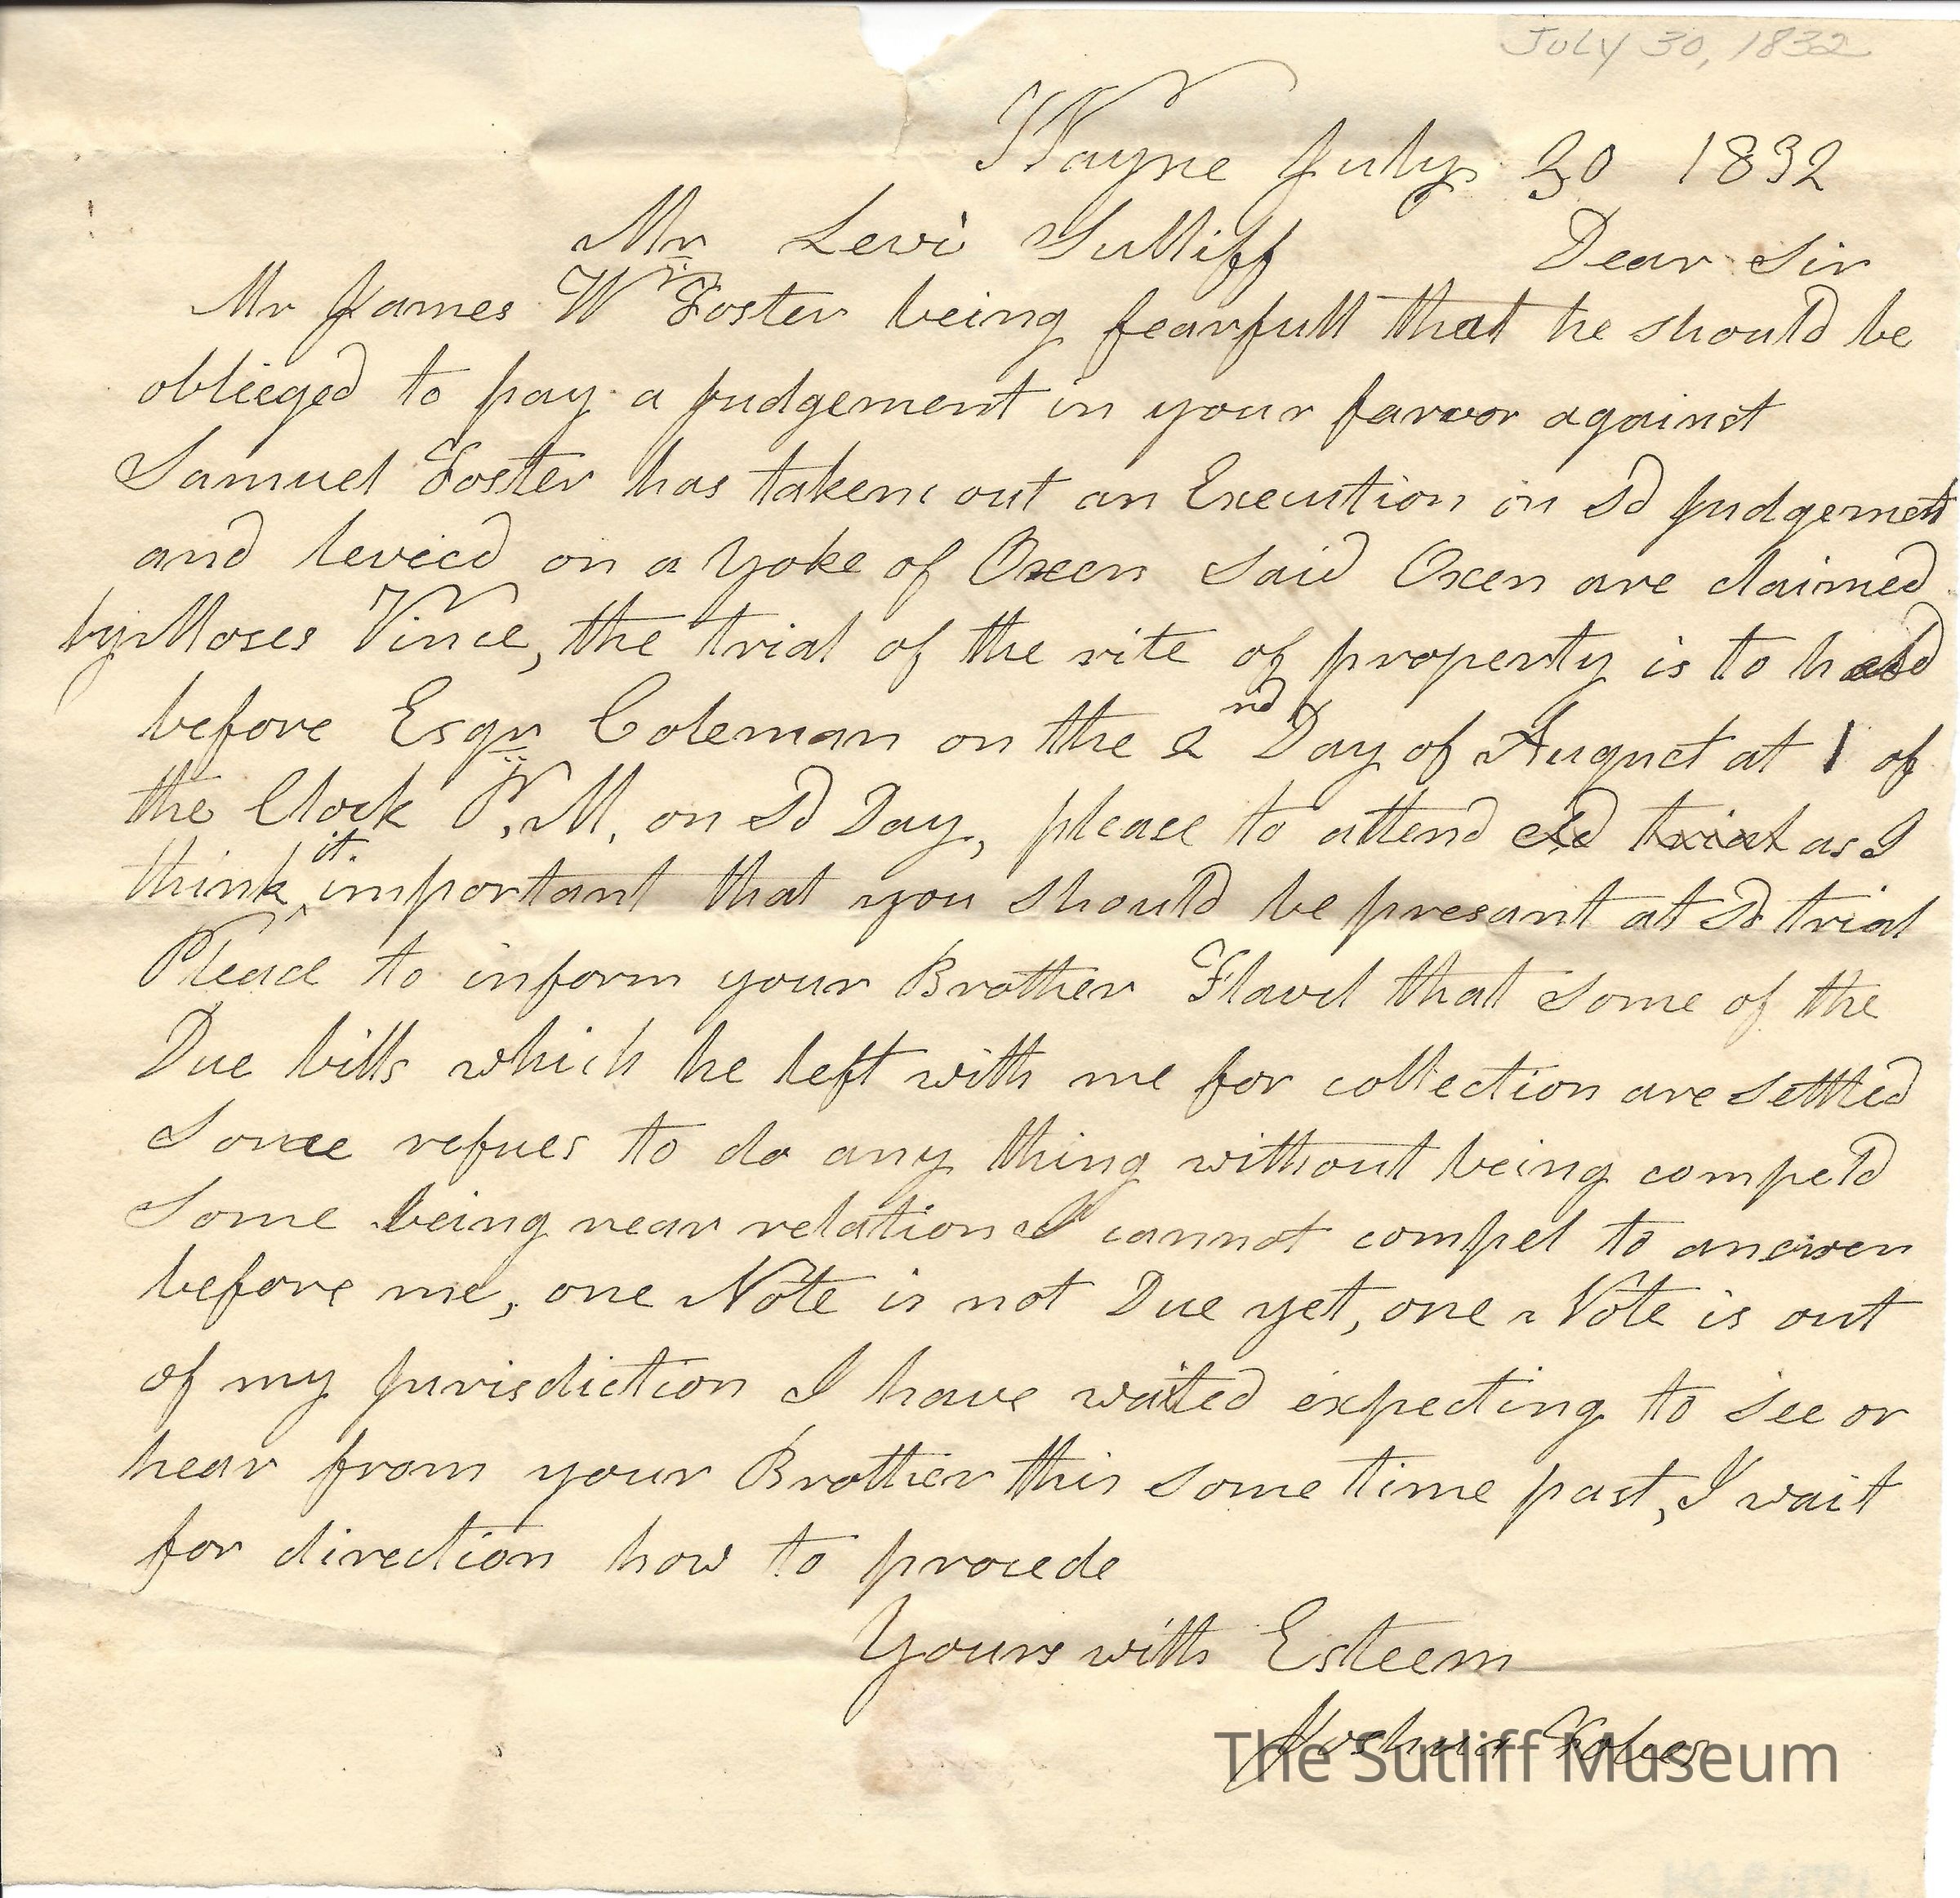 July 30, 1832
Wayne July 30 1832
Mr Levi Sutliff Dear Sir
Mr James W Foster being fearfull that he should be
oblieged to pay a judgement in your farvor against
Samuel Foster has taken out an Execution in Sd judgement
and levied on a yoke of Oxen Said Oxen are claimed
by Moses Vince, the trial of the rite of property is to held
before Esqr Coleman on the 2nd Day of August at 1 of
the Clock P,M, on Sd Day, please to attend as I
think it important that you should be presant at Sd trial
Please to inform your Brother Flavel that some of the
Due bills which he left with me for collection are settled
Some refues to do any thing without being compeld
Some being near relation I cannot compel to answer
before me, one Note is not Due yet, one Note is out
of my jurisdiction I have waited expecting to see or
hear from your Brother this some time past, I wait
for direction how to procede
Yours with Esteem
Joshua Fobes
The Sutliff Museum